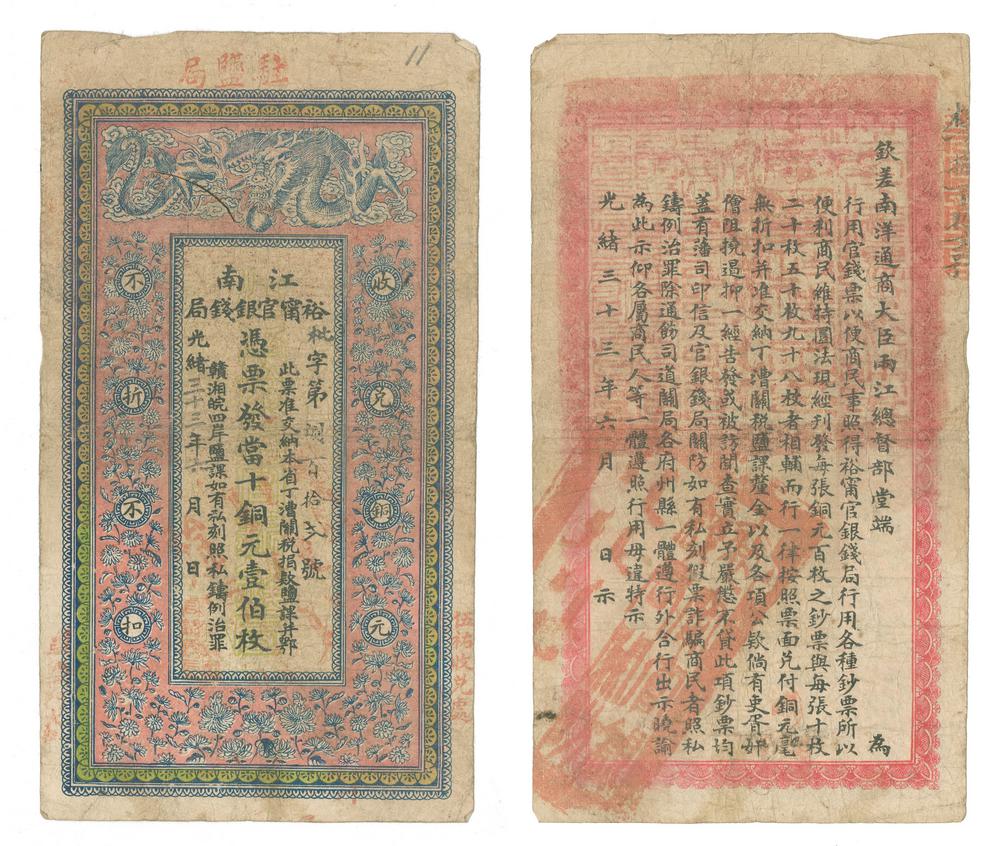 11
駐鹽局
江南
裕甯官銀錢局
收兌銅元
不折不扣
批字第 百拾 號
此票准交納本省丁漕關稅捐款鹽課并鄂
憑票發當十銅元壹伯枚
贛湘皖四岸鹽課如有私刻照私鑄例治罪
光緒三十三年六月 日
欽差南洋通商大臣兩江總督部堂端 為
行用官錢票以便商民事照得裕甯官銀錢局行用各種鈔票所以
便利商民維持圜法現經刊發每張銅元百枚之鈔票與每張十枚
二十枚五十枚九十八枚者相輔而行一律按照票面兌付銅元毫
無折扣并准交納丁漕關稅鹽課釐金以及各項公款倘有吏胥奸
儈阻撓遏抑一經告發或被訪聞查實立予嚴懲不貸此項鈔票均
蓋有藩司印信及官銀錢局關防如有私刻假票詐騙商民者照私
鑄例治罪除通飭司道關局各府州縣一體遵行外合行出示曉諭
為此示仰各屬商民人等一體遵照行用毋違特示
光緒三十三年六月 日示